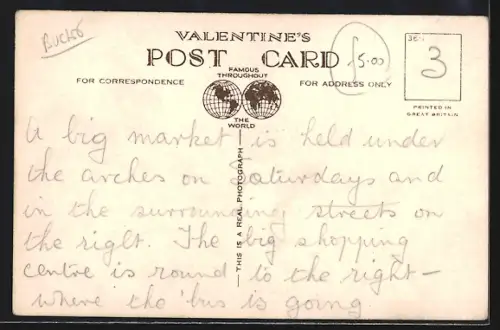 Bucks
VALENTINE'S
POST CARD
FAMOUS
THROUGHOUT
FOR CORRESPONDENCE
FOR ADDRESS ONLY
THE
WORLD
£5.00
3
PRINTED IN
GREAT BRITAIN
THIS IS A REAL PHOTOGRAPH
A big market is held under
the arches on Saturdays and
in the surrounding streets on
the right. The big shopping
centre is round to the right –
where the 'bus is going